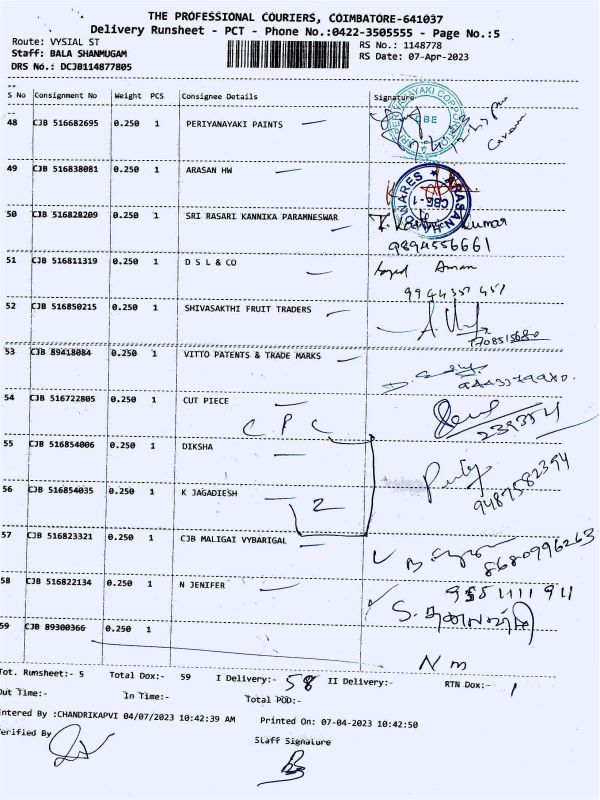 THE PROFESSIONAL COURIERS, COIMBATORE-641037
Delivery Runsheet - PCT - Phone No.:0422-3505555 - Page No.:5
Route: VYSIAL ST
RS No.: 1148778
Staff: BALA SHANMUGAM
RS Date: 07-Apr-2023
DRS No.: DCJB114877805
S No Consignment No Weight PCS Consignee Details Signature
48 CJB 516682695 0.250 1 PERIYANAYAKI PAINTS
CBE
49 CJB 516838081 0.250 1 ARASAN HW
CBE-1
50 CJB 516828209 0.250 1 SRI RASARI KANNIKA PARAMNESWAR
kumar
9894556661
51 CJB 516811319 0.250 1 D S L & CO
Syed Aman
9944357451
52 CJB 516850215 0.250 1 SHIVASAKTHI FRUIT TRADERS
53 CJB 89418084 0.250 1 VITTO PATENTS & TRADE MARKS
54 CJB 516722805 0.250 1 CUT PIECE
C P C
239354
55 CJB 516854006 0.250 1 DIKSHA
9487582394
56 CJB 516854035 0.250 1 K JAGADIESH
2
57 CJB 516823321 0.250 1 CJB MALIGAI VYBARIGAL
8680996263
58 CJB 516822134 0.250 1 N JENIFER
59 CJB 89300366 0.250 1
N m
Tot. Runsheet:- 5 Total Dox:- 59 I Delivery:- 58 II Delivery:- RTN Dox:- 1
Out Time:- In Time:- Total POD:-
Entered By :CHANDRIKAPVI 04/07/2023 10:42:39 AM Printed On: 07-04-2023 10:42:50
Verified By
Staff Signature